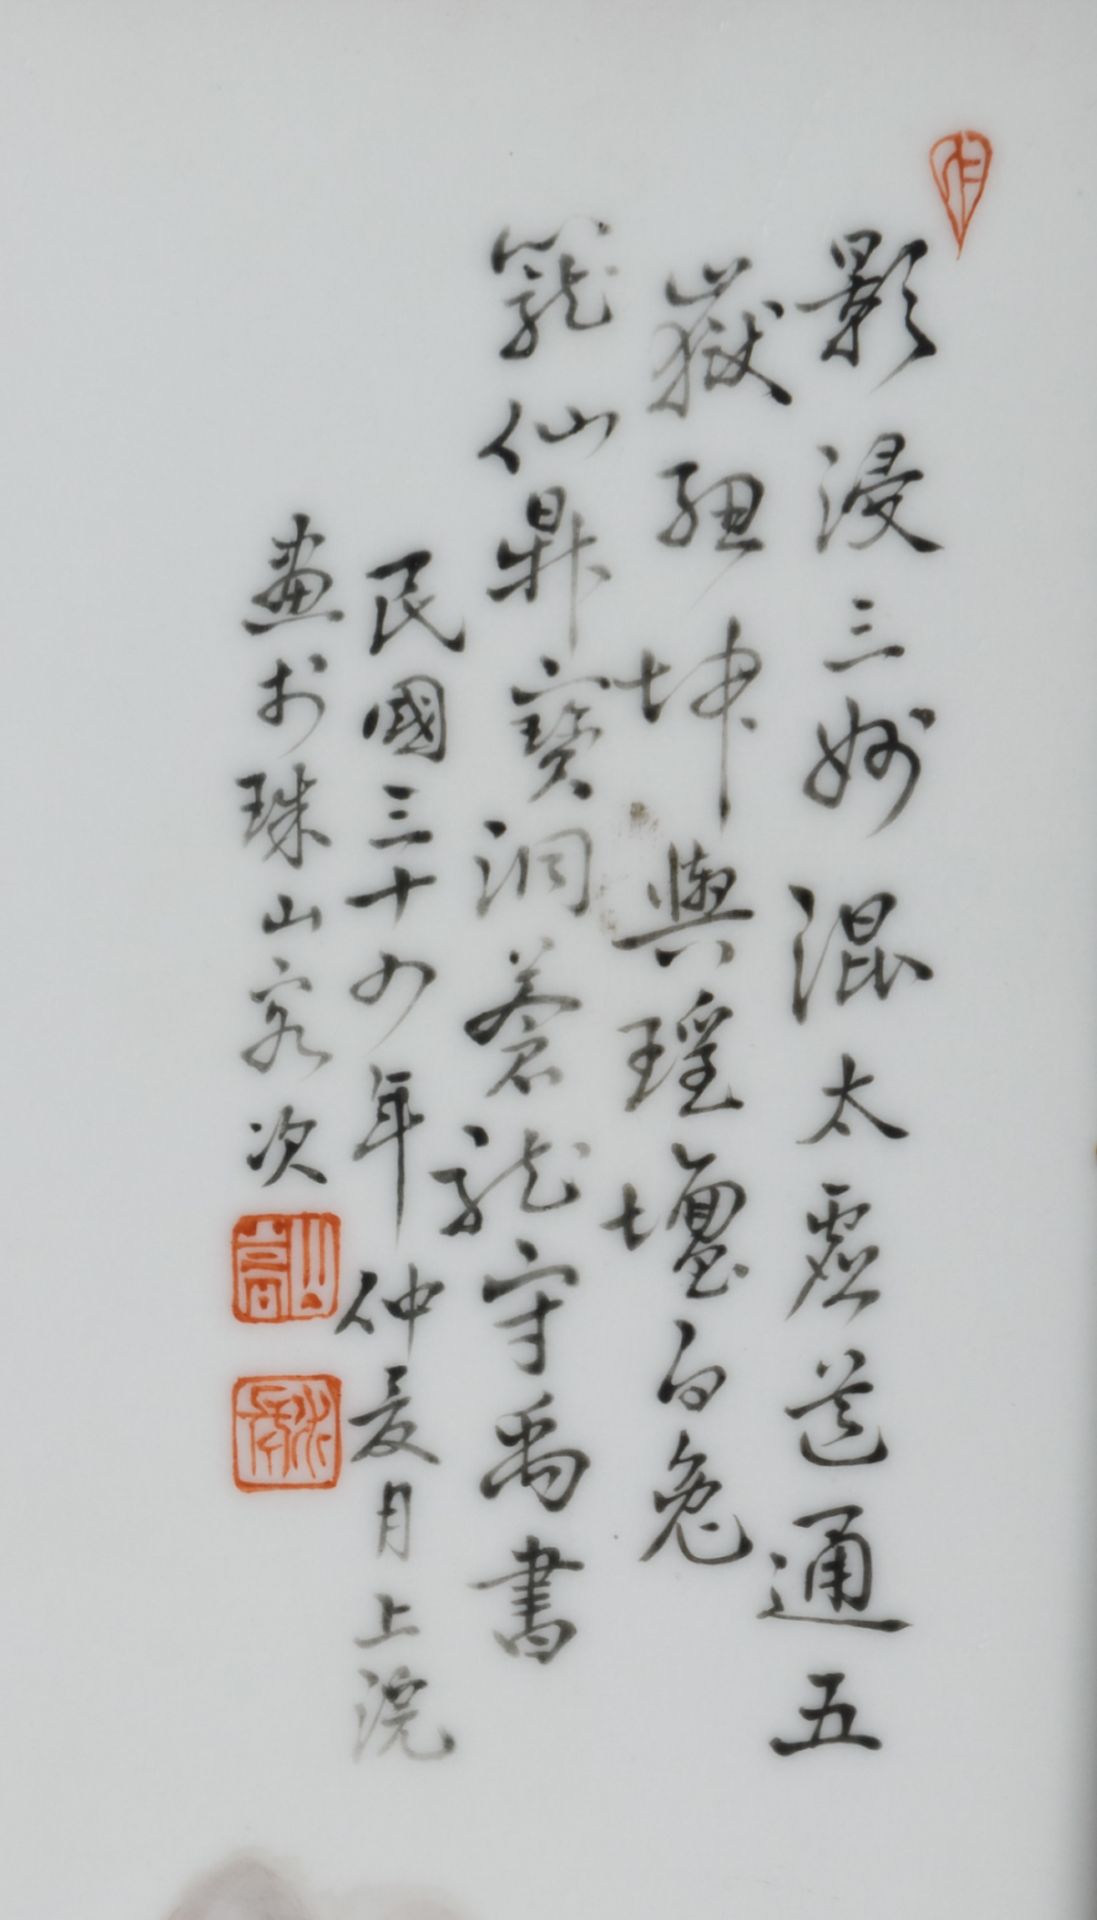 影浸三妙混太虛道通五
嶽紐坤輿瑤壇白兔
籠仙鼎寶洞蒼龍守禹書
民國三十四年仲夏月上浣
畫於珠山客次
山高
水長